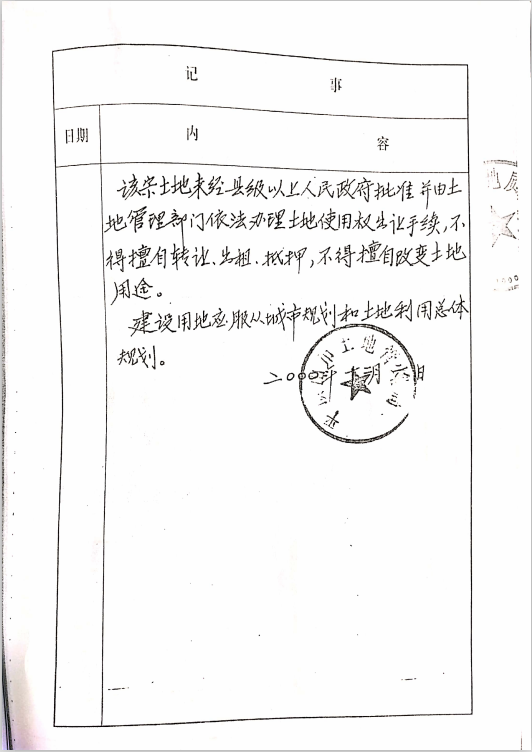 记 事
日期 内 容
该宗土地未经县级以上人民政府批准并由土
地管理部门依法办理土地使用权出让手续,不
得擅自转让、出租、抵押,不得擅自改变土地
用途。
建设用地应服从城市规划和土地利用总体
规划。
二〇〇〇年 月 日
平 市土地管
地